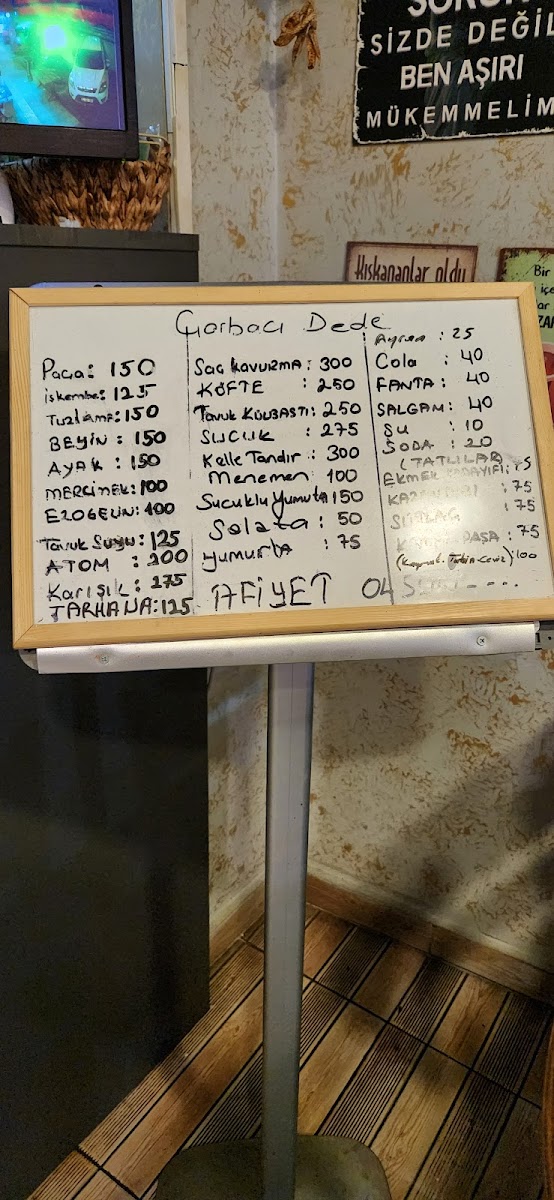 SORUN
SİZDE DEĞİL
BEN AŞIRI
MÜKEMMELİM
Kıskananlar oldu
Bir
içe
lar
ZAR
Çorbacı Dede
Paça: 150
işkembe: 125
Tuzlama: 150
BEYİN : 150
AYAK : 150
MERCİMEK: 100
EZOGELİN: 100
Tavuk Suyu: 125
ATOM : 200
Karışık : 275
TARHANA: 125
Saç kavurma : 300
KÖFTE : 250
Tavuk KÜLBASTI : 250
SUCUK : 275
Kelle Tandır : 300
Menemen 100
Sucuklu Yumurta 150
Salata : 50
yumurta : 75
Ayran : 25
Cola : 40
FANTA : 40
ŞALGAM : 40
SU : 10
SODA : 20
(TATLILAR)
EKMEK KADAYIFI: 75
: 75
SÜTLAÇ : 75
PAŞA : 75
100
AFİYET OLSUN - - . .